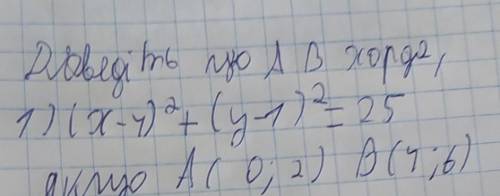 Доведіть що А В хорда,
1) (x-4)² + (y-1)² = 25
якщо А( 0; 2) В(4;6)